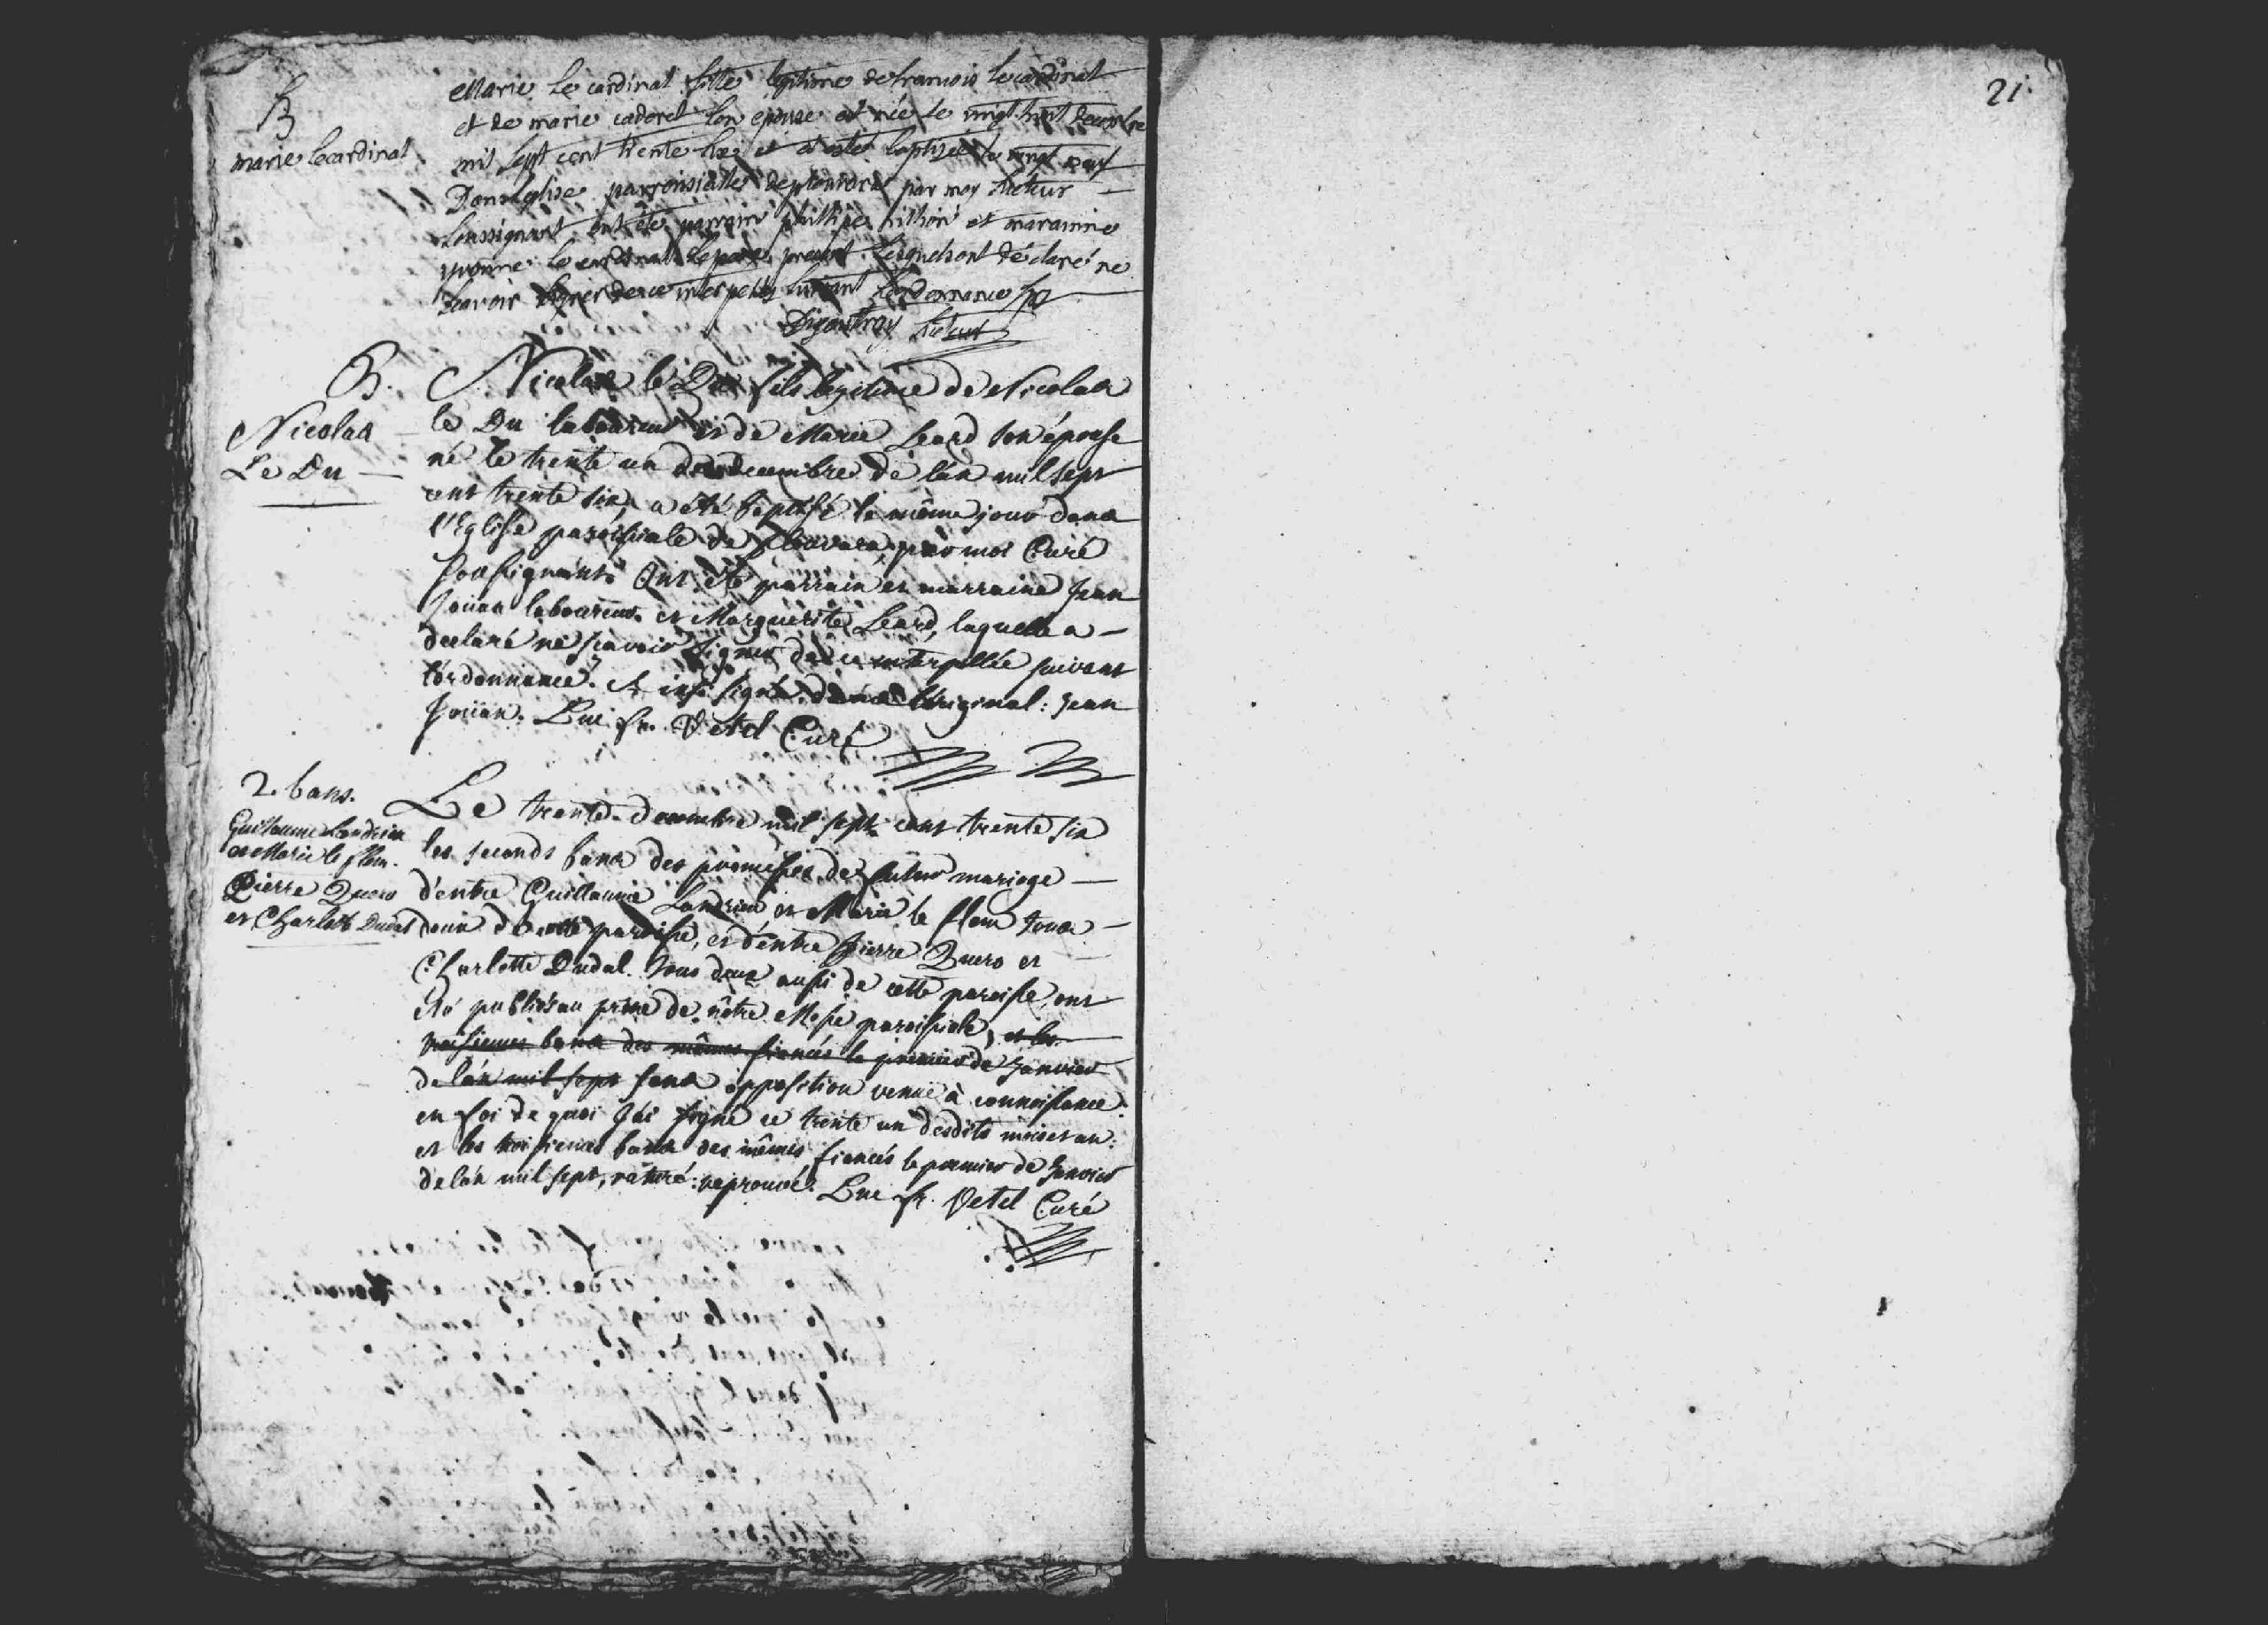 21
B
marie lecardinal
Marie le cardinal fille legitime de francois le cardinal
et de marie cadoret son epouse est née le vingt huit decembre
mil sept cent trente six et a esté baptisée le vingt neuf
Dans leglise parroissialle de par moy Recteur
soussignant ont été parrain phillipe et maraine
yvonne le cardinal le pere present lesquels ont déclaré ne
scavoir signer de ce interpellez suivant lordonnance
Recteur
B.
Nicolas
Le Du
Nicolas le Du fils legitime de Nicolas
le Du laboureur et de Marie Leard son épouse
né le trente un de decembre de l'an mil sept
cent trente six, a été baptisé le même jour dans
l'Eglise paroissiale de par moi Curé
soussignant. Ont été parrain et marraine Jean
Joüan laboureur et Marguerite Leard, laquelle a
declaré ne sçavoir signer de ce interpellée suivant
l'ordonnance. Et insi signé dans l'original: Jean
Joüan. Luc fr. Vetel Curé
2. bans.
Guillaume Landrien
et Marie le flem.
Pierre Quero
et Charlotte Dudal
Le trente decembre mil sept cent trente six
les seconds bans des promesses de futur mariage
d'entre Guillaume Landrien et Marie le flem tous
deux de cette paroisse, et d'entre Pierre Quero et
Charlotte Dudal tous deux aussi de cette paroisse, ont
été publiés au prône de nôtre Messe paroissiale, et les
troisiemes bans des mêmes fiancés le premier de Janvier
de l'an mil sept sans opposition venuë à connoissance.
en foi de quoi J'ai signé ce trente un desdits mois et an:
et les troisiemes bans des mêmes fiancés le premier de Janvier
de l'an mil sept, raturé: reprouvé. Luc fr. Vetel Curé